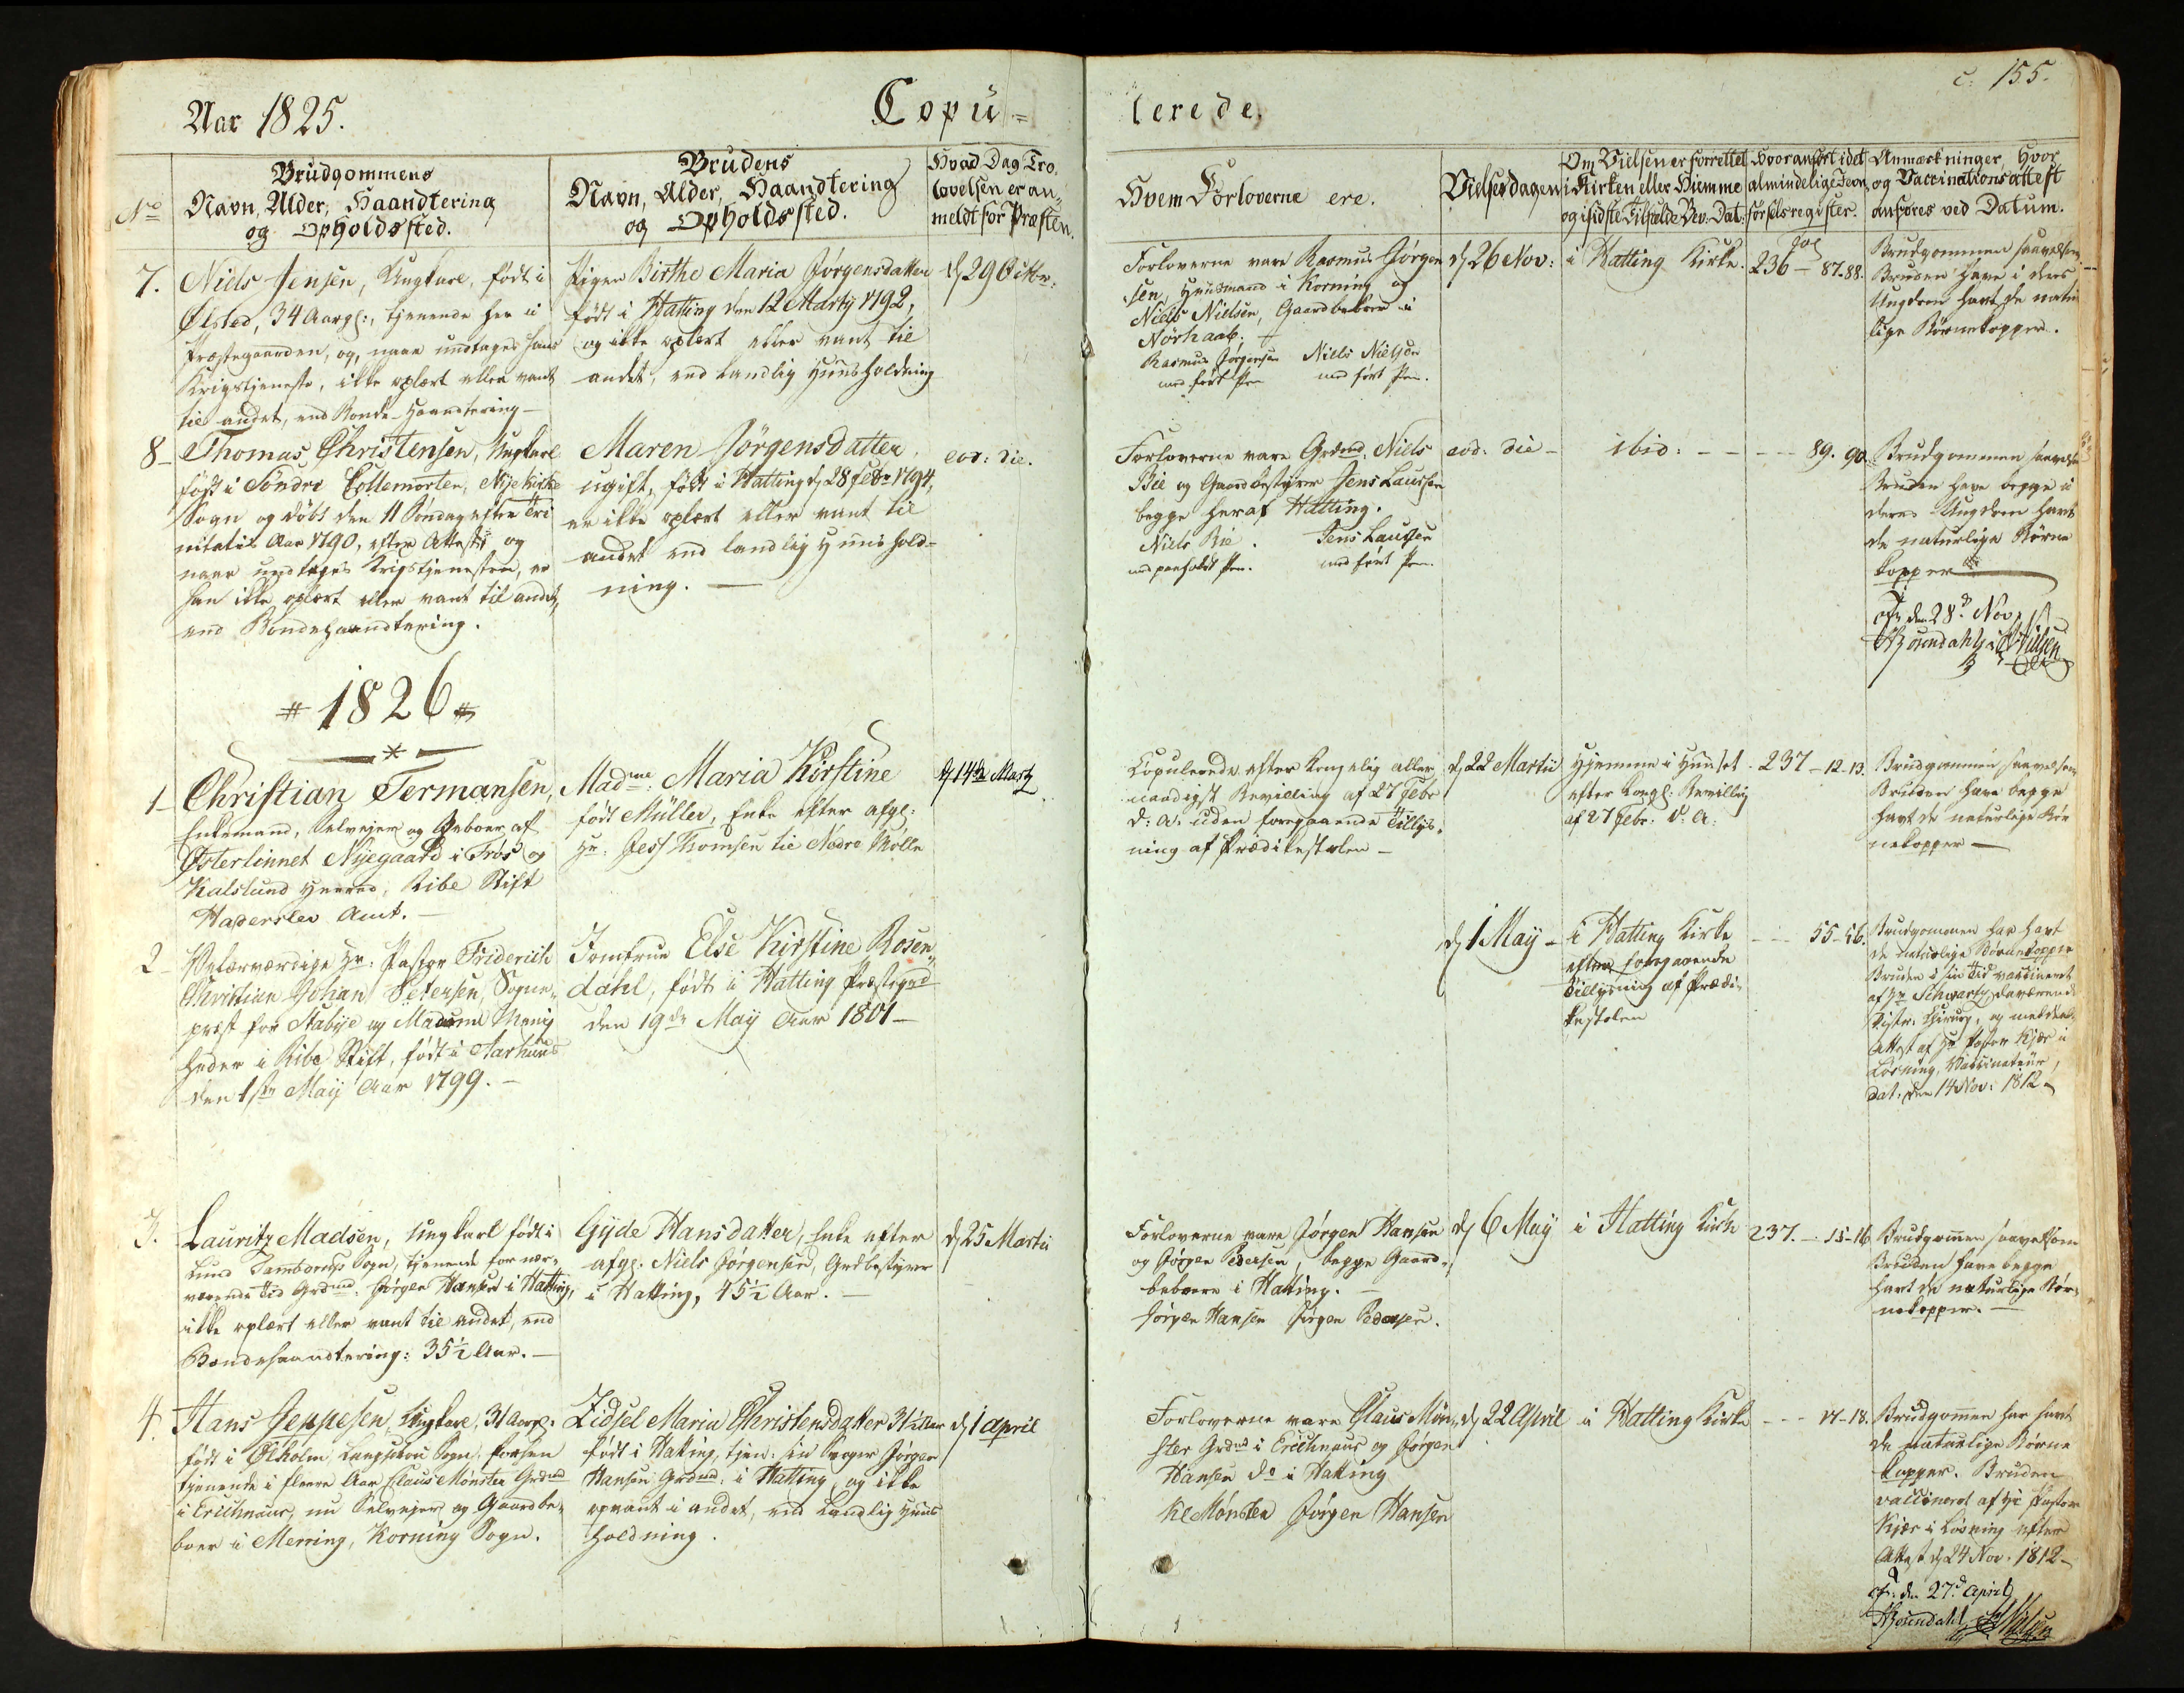 Aar 1825.
Copu=
lerede.
c. 155.
No
Brudgommens
Navn, Alder, Haandtering
og Opholdssted.
Brudens
Navn, Alder, Haandtering
og Opholdssted.
Hvad Dag Tro-
lovelsen er an-
meldt for Præsten.
Hvem Forloverne ere.
Vielsesdagen
Om Vielsen er forrettet
i Kirken eller Hiemme
og i sidste Tilfælde Bev. Dat.
Hvor anført i det
almindelige Jevn-
førselsregister.
Anmærkninger, Hvor
og Vaccinationsattest
anføres ved Datum.
7.
Niels Jensen, Ungkarl, født i
Ølsted, 34 Aar gl:, tjenende her i
Præstegaarden, og, naar undtages hans
Krigstjeneste, ikke oplært eller vant
til andet, end Bonde-Haandtering-
Pigen Birthe Maria Jørgensdatter
født i Hatting den 12 Marty 1792,
og ikke oplært eller vant til
andet, end landlig Huusholdning
d 29 Octbr.
Forloverne vare Rasmus Jørgen
sen, Huusmand i Korning og
Niels Nielsen, Gaardbeboer i
Nørhaab.
Rasmus Jørgensen Niels Nielsen
med ført Pen med ført Pen.
d 26 Nov:
i Hatting Kirke.
236 - 87.88.
Brudgommen saavelsom
Bruden have i deres
Ungdom havt de natur
lige Børnekopper.
8-
Thomas Christensen, Ungkarl
født i Søndre Kollemorten, Nykirke
Sogn og døbt den 11 Søndag efter Tri
nitatis Aar 1790, efter Attest og
naar undtages Krigstjenesten, er
han ikke oplært eller vant til andet,
end Bondehaandtering.
Maren Jörgensdatter
ugift, født i Hatting d 28 Febr 1794,
er ikke oplært eller vant til
andet end landlig Huushold-
ning. -
eod: die.
Forloverne vare Grdmd. Niels
Bie og Gaardbestyrer Jens Laursen
begge her af Hatting.
Niels Bie. Jens Laursen
med paaholdt Pen. med ført Pen.
eod: die -
ibid: - - - -
89. 90.
Brudgommen saavelsom
Bruden have begge i
deres Ungdom havt
de naturlige Børne
kopper
den 28 Nov
Rosendahl Nielsen
1826
1-
Christian Termansen,
Enkemand, Selvejer og Beboer af
Østerlinnet Nyegaard i Frøs og
Kalslund Herred, Ribe Stift
Haderslev Amt. -
Madme: Maria Kirstine
født Müller, Enke efter afgl:
Hr. Jess Thomsen til Nedre Mølle
d 14de Marty
Copulerede efter Kongelig aller
naadigst Bevilling af 27 Febr
d: A: uden foregaaende Tillys-
ning af Prædikestolen -
d 22 Martii
Hjemme i Huuset
efter Kongl: Bevilling
af 27 Febr. d: A:
237 - 12-13.
Brudgommen saavelsom
Bruden have begge
havt de naturlige Bør
nekopper -
2-
Velærværdige Hr. Pastor Friderich
Christian Johan Petersen, Sogne-
præst for Stabye og Madum Menig-
heder i Ribe Stift, født i Aarhuus
den 1ste May Aar 1799. -
Jomfrue Else Kirstine Rosen-
dahl, født i Hatting Præstegrd
den 19de May Aar 1801 -
d 1 May -
i Hatting Kirke
efter foregaaende
Tillysning af Prædi-
kestolen
- - 55-56.
Brudgommen har havt
de naturlige Børnekopper
Bruden i sin Tid vaccineret
af Hr Schwartz, daværende
Distr. Chirurg, og meddeelt
Attest af Hr Pastor Kjær i
Løsning, Vaccinateur,
dat. den 14 Nov: 1812 -
3.
Lauritz Madsen, Ungkarl født i
Lund Tamdrup Sogn, tjenende for nær-
værende Tid Grdmd. Jørgen Hansen i Hatting,
ikke oplært eller vant til andet, end
Bondehaandtering: 35½ Aar. -
Gyde Hansdatter, Enke efter
afgl: Niels Jørgensen, Grdbestyrer
i Hatting, 45½ Aar. -
d 25 Martii
Forloverne vare Jørgen Hansen
og Jørgen Pedersen, begge Gaard-
beboere i Hatting. -
Jørgen Hansen Jørgen Pedersen.
d 6 May
i Hatting Kirke
237. - 15-16
Brudgommen saavelsom
Bruden have begge
havt de naturlige Bør-
nekopper. -
4.
Hans Jeppesen, Ungkarl, 31 Aar gl:
født i Ølholm Langskov Sogn, forhen
tjenende i fleere Aar Claus Mønster Grdmd
i Erichnauer, nu Selvejer og Gaardbe-
boer i Merring, Korning Sogn.
Zidsel Maria Christensdatter 31½ Aar
født i Hatting, tjen: sin Svoger Jørgen
Hansen Grdmd. i Hatting, og ikke
opvant i andet, end Landlig Huus
holdning.
d 1 April
Forloverne vare Claus Møn-
ster Grdmd i Erichnauer og Jørgen
Hansen do i Hatting
Kl Mønster Jørgen Hansen
d 22 April
i Hatting Kirke
- - - 17-18.
Brudgommen har havt
de naturlige Børne
kopper. Bruden
vaccineret af Hr Pastor
Kjær i Løsning efter
Attest d 24 Nov. 1812 -
den 27d April
Rosendahl Nielsen